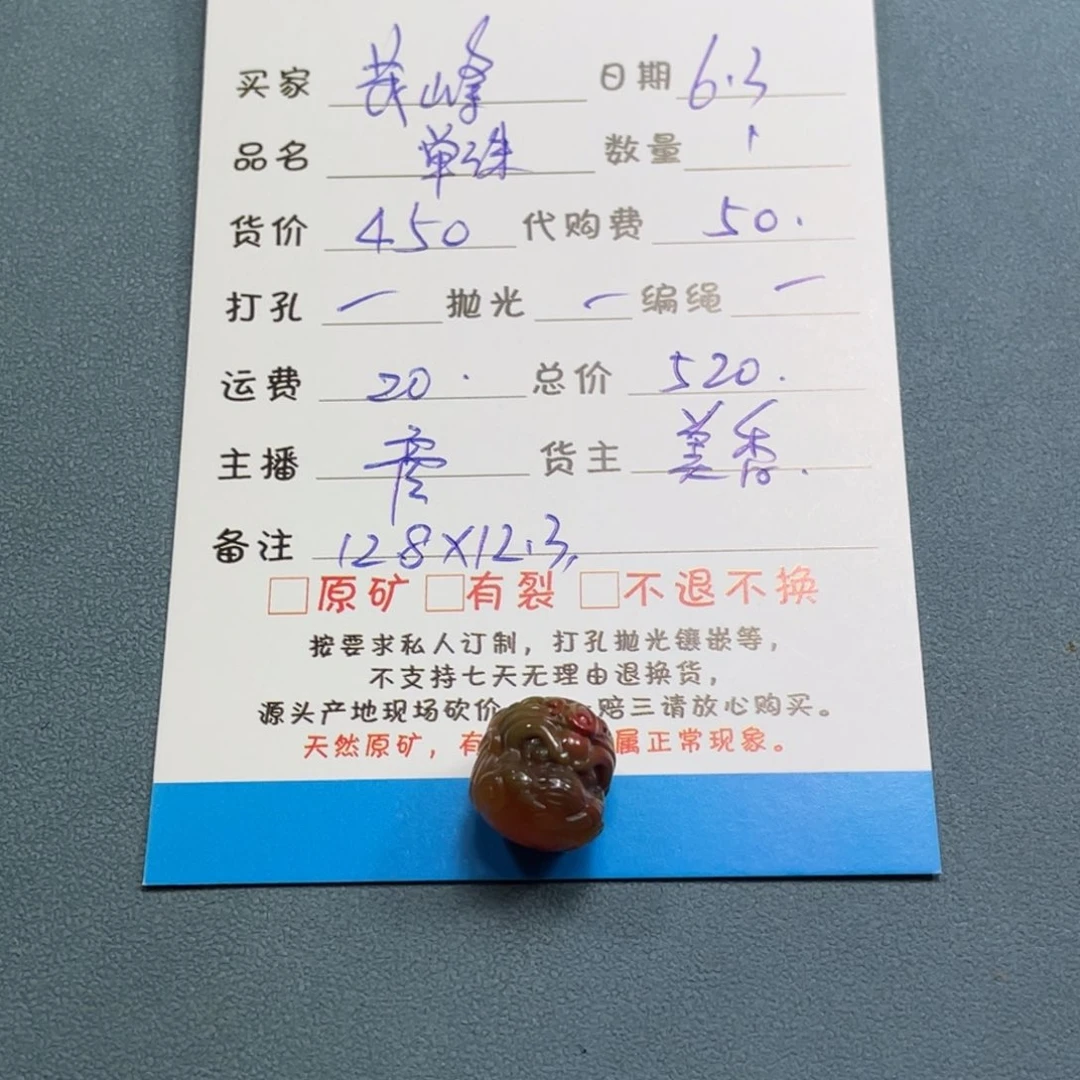 买家 茂山峰 日期 6.3
品名 单珠 数量 1
货价 450 代购费 50.
打孔 一 抛光 一 编绳 一
运费 20. 总价 520.
主播 零 货主 美香.
备注 128X12.3,
□原矿 □有裂 □不退不换
按要求私人订制，打孔抛光镶嵌等，
不支持七天无理由退换货，
源头产地现场砍价 赔三请放心购买。
天然原矿，有 属正常现象。